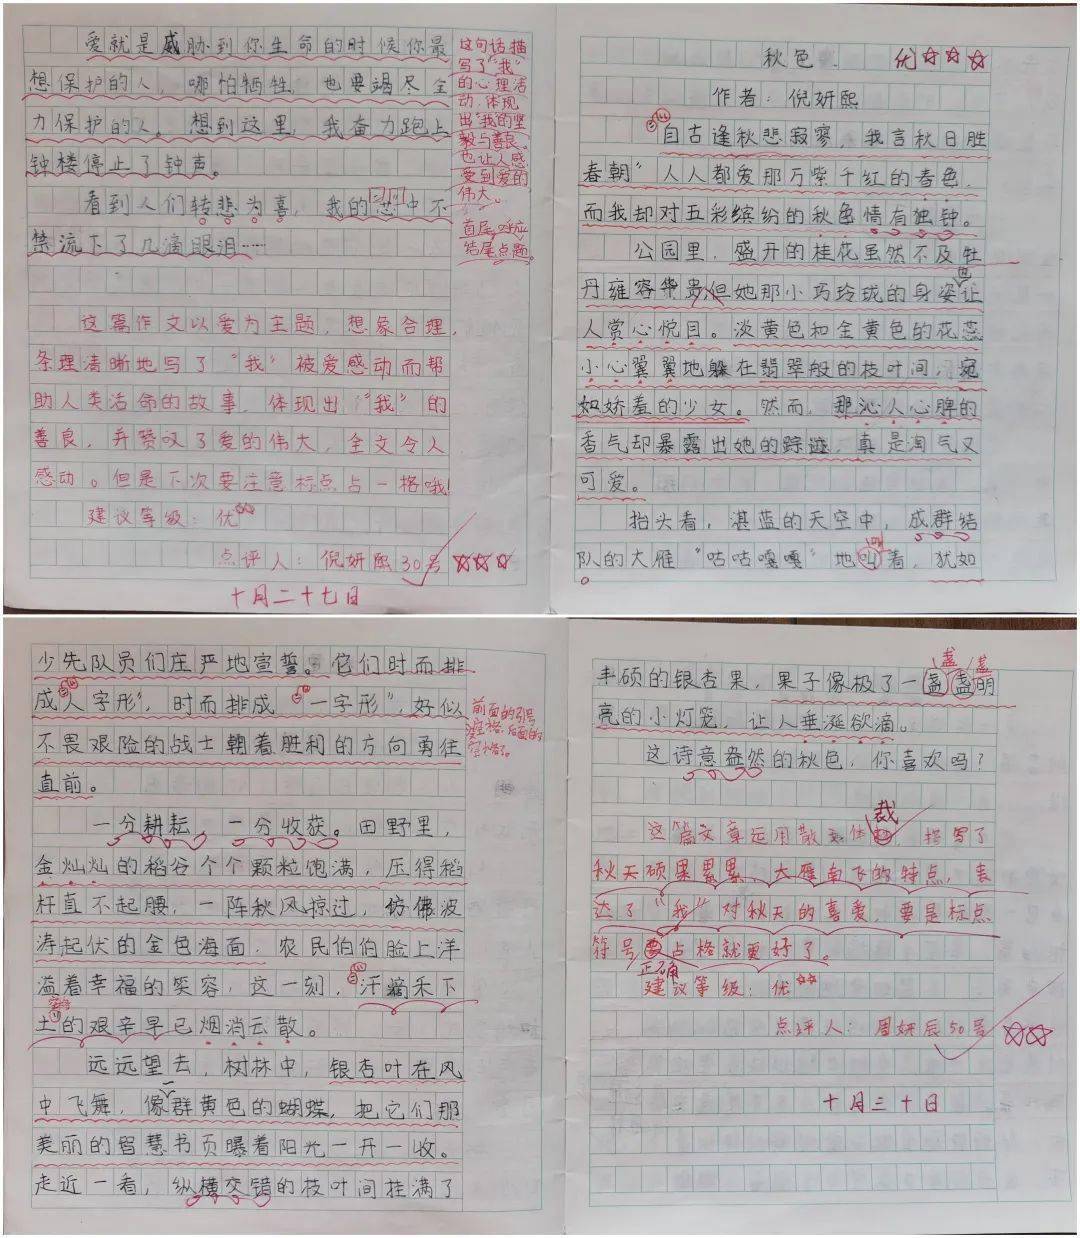 爱就是威胁到你生命的时候你最
想保护的人，哪怕牺牲，也要竭尽全
力保护的人。想到这里，我奋力跑上
钟楼停止了钟声。
看到人们转悲为喜，我的心中不
禁流下了几滴眼泪……
这句话描
写了“我”
的心理活
动，体现
出“我”的坚
毅与善良。
也让人感
受到爱的
伟大。
首尾呼应
结尾点题。
这篇作文以爱为主题，想象合理，
条理清晰地写了“我”被爱感动而帮
助人类活命的故事，体现出“我”的
善良，并赞叹了爱的伟大，全文令人
感动。但是下次要注意标点占一格哦！
建议等级：优
点评人：倪妍熙30号
十月二十七日
秋色
优
作者：倪妍熙
“自古逢秋悲寂寥，我言秋日胜
春朝”人人都爱那万紫千红的春色，
而我却对五彩缤纷的秋色情有独钟。
公园里，盛开的桂花虽然不及牡
丹雍容华贵，但她那小巧玲珑的身姿让
人赏心悦目。淡黄色和金黄色的花蕊
小心翼翼地躲在翡翠般的枝叶间，宛
如娇羞的少女。然而，那沁人心脾的
香气却暴露出她的踪迹，真是淘气又
可爱。
抬头看，湛蓝的天空中，成群结
队的大雁“咕咕嘎嘎”地叫着，犹如
少先队员们庄严地宣誓。它们时而排
成“人字形”，时而排成“一字形”，好似
不畏艰险的战士朝着胜利的方向勇往
直前。
前面的引号
一分耕耘，一分收获。田野里，
金灿灿的稻谷个个颗粒饱满，压得稻
杆直不起腰，一阵秋风掠过，仿佛波
涛起伏的金色海面，农民伯伯脸上洋
溢着幸福的笑容，这一刻，“汗滴禾下
土”的艰辛早已烟消云散。
远远望去，树林中，银杏叶在风
中飞舞，像一群黄色的蝴蝶，把它们那
美丽的智慧书页曝着阳光一开一收。
走近一看，纵横交错的枝叶间挂满了
丰硕的银杏果，果子像极了一盏盏明
亮的小灯笼，让人垂涎欲滴。
这诗意盎然的秋色，你喜欢吗？
这篇文章运用散文体裁，描写了
秋天硕果累累、大雁南飞的特点，表
达了“我”对秋天的喜爱，要是标点
符号正确占格就更好了。
建议等级：优
点评人：周妍辰50号
十月三十日